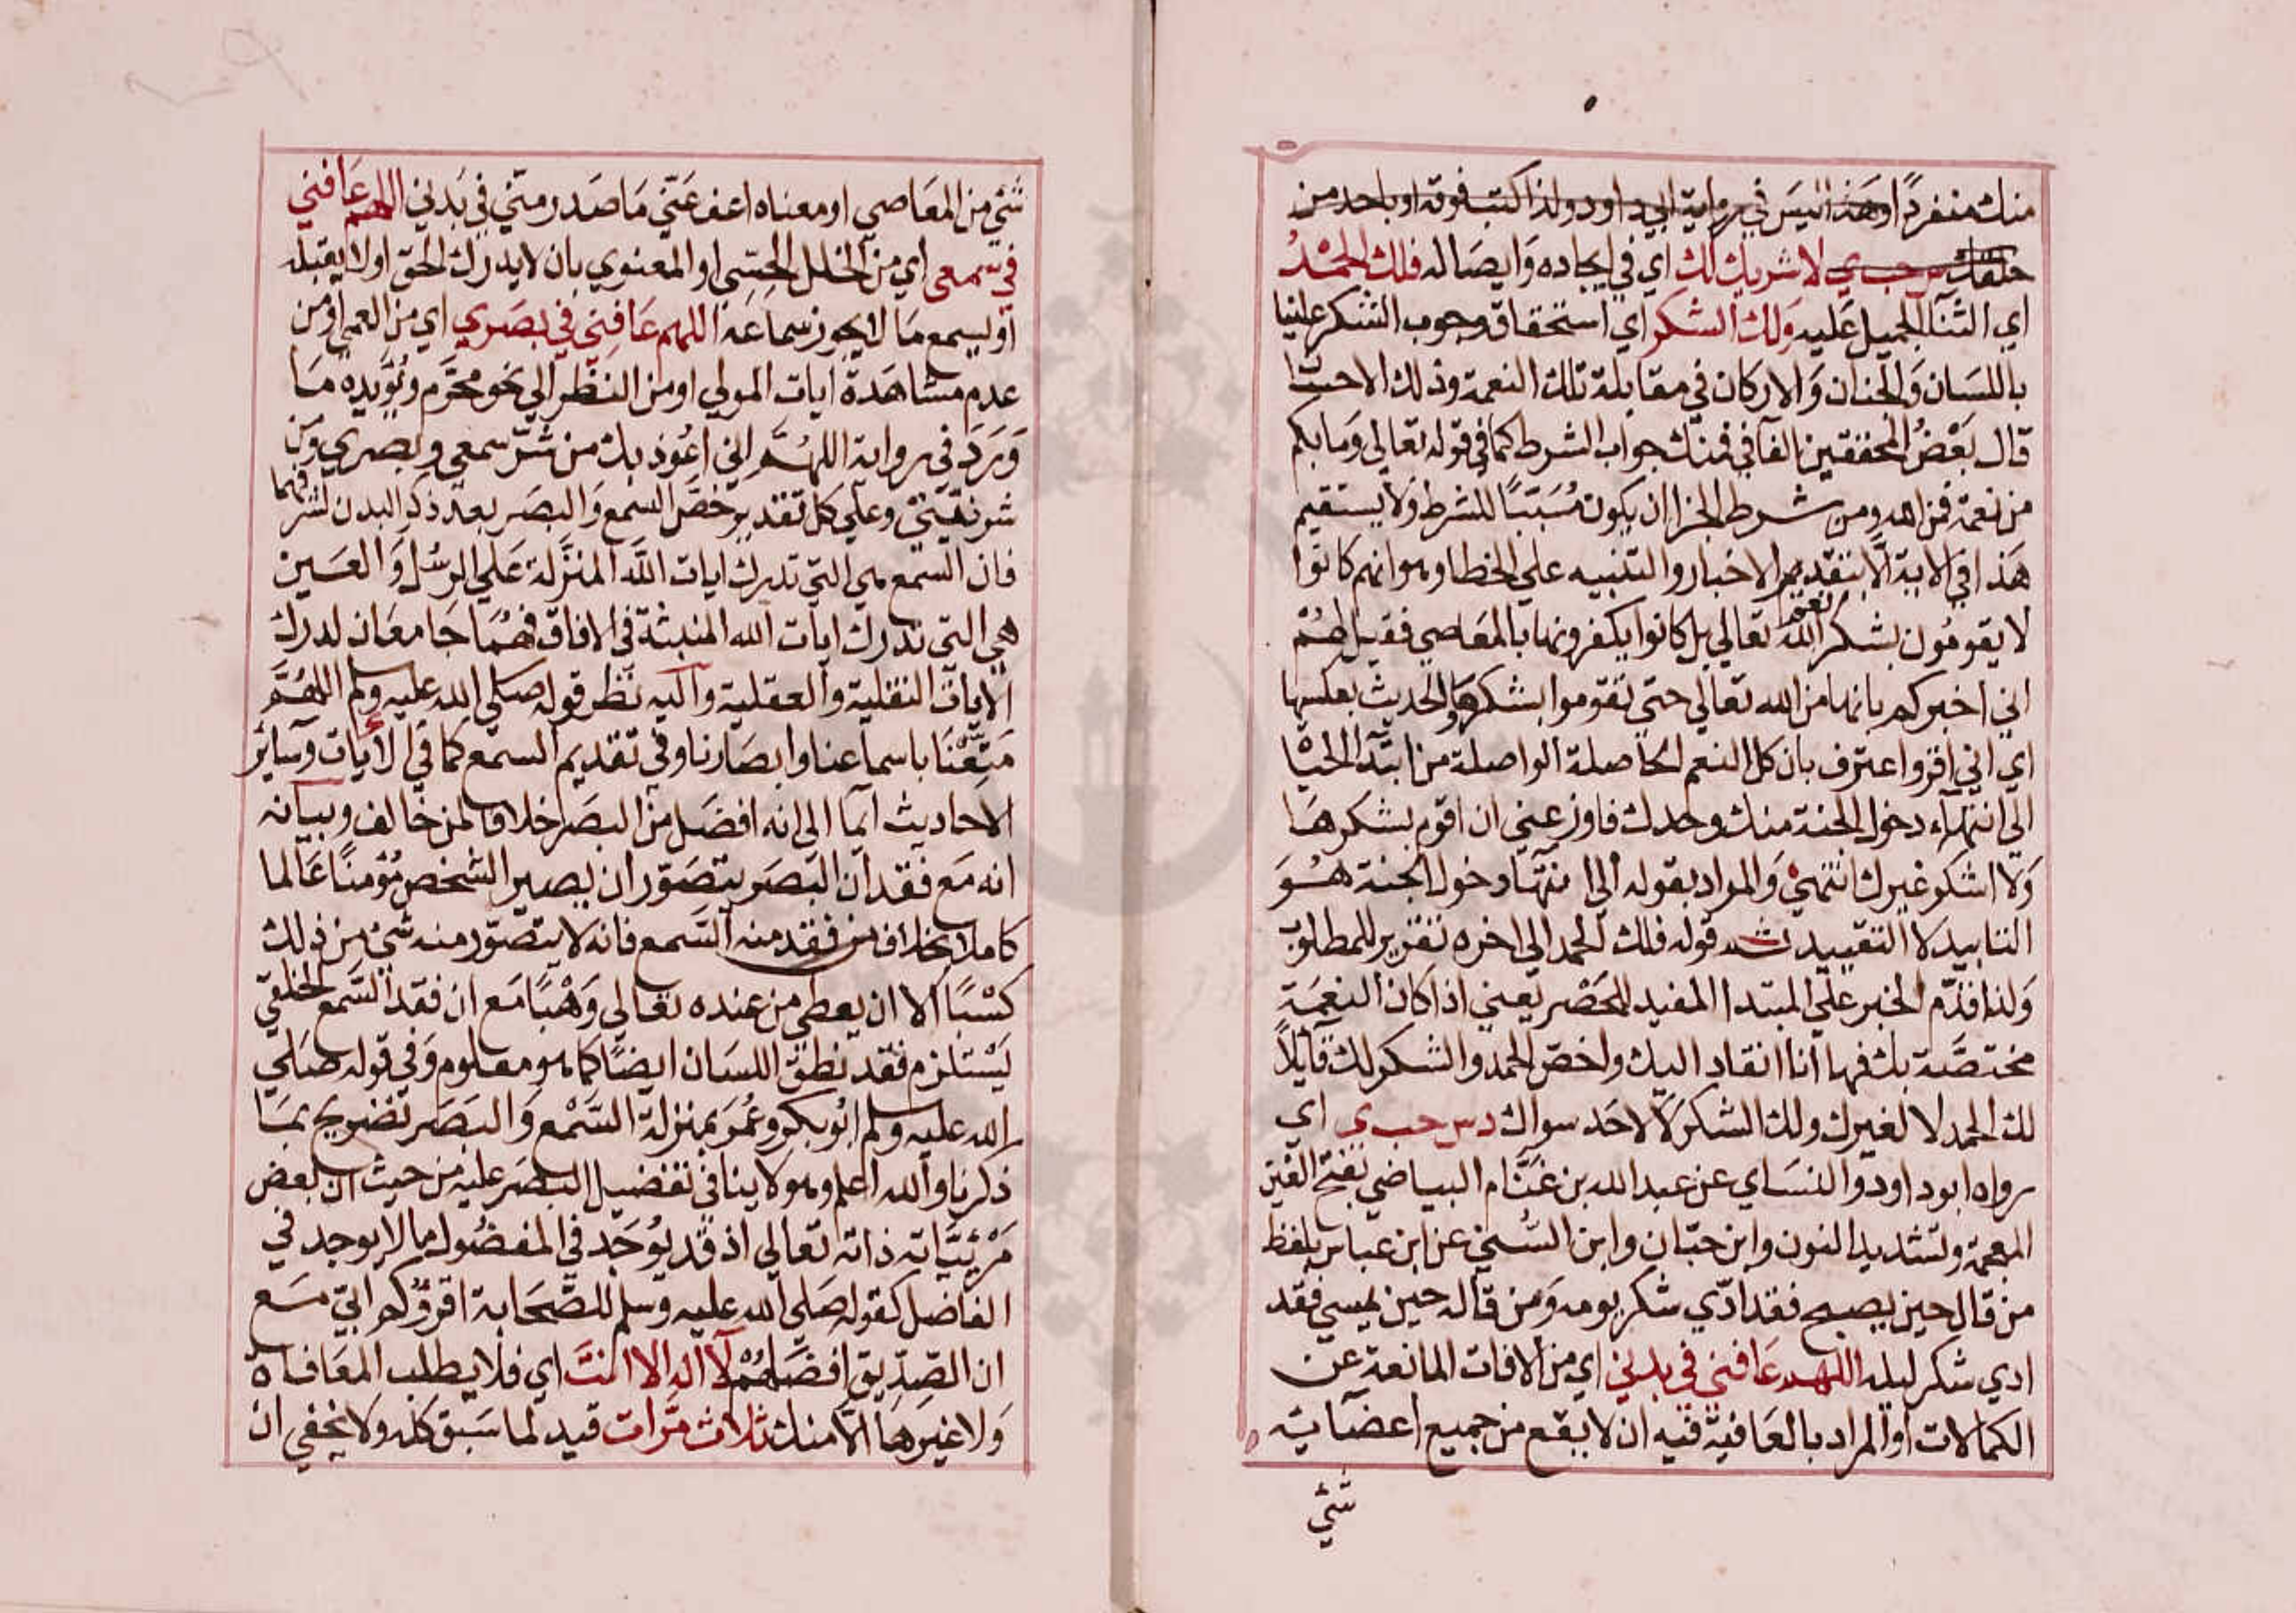 منك منفردًا او هذا ليس في رواية ابي داود ولذا كتب فوقه او باحد من
خلقك س حب ي لا شريك لك اي في ايجاده وَايصاله فلك الحمْدُ
اي الثنآ الجميل عَليه وَلك الشكر اي استحقاق وجوب الشكر علينا
باللسَان وَالجنان وَالاركان في مقابلة تلك النعمة وذلك الاحسَان
قال بَعْضُ المحققين الفآ في فمنك جواب الشرط كما في قوله تعالى وَما بكم
من نعمة فمن الله ومن شرط الجزا ان يكون مُسَبَّبًا للشرط وَلا يستقيم
هَذا في الاية الّا بتقدير الاخبار والتنبيه علي الخطا وهو انهم كانوا
لا يقومُون بشكر نعم اللّه تعالي بل كانوا يكفرونها بالمعَاصي فقيل لهُمْ
اني اخبركم بانها من الله تعالي حتي تقوموا بشكرهَا والحديث بعكسها
اي اني اقر واعترف بان كل النعم الحاصلة الواصلة من ابتدآ الحيَا
الي انتهآء دخول الجنة منك وحدك فاوزعني ان اقوم بشكرهَا
وَلا اشكر غيرك انتهي وَالمراد بقوله الي انتهآ دخول الجنة هُوَ
التابيد لا التقييد ثم قوله فلك الحمد الي اخره تقرير للمطلوب
وَلذا قدّم الخبر علي المبتدا المفيد للحَصْر يَعني اذا كان النعمَة
مختصَّة بك فها انا انقاد اليك واخصّ الحمد والشكر لك قآيلاً
لك الحمد لا لغيرك ولك الشكر لا لاحَد سواك د س حب ي اي
رواه ابو داود والنسَاي عن عبد الله بن غَنَّام البياضي بفتح الغين
المعجمة وتشديد النون وابن حبّان وابن السُّني عن ابن عباس بلفظ
من قال حين يصبح فقد ادّي شكر يومه وَمن قاله حين يمسي فقد
ادي شكر ليله اللهم عَافني في بدني اي من الافات المانعة عن
الكمالات او المراد بالعَافية فيه ان لا يقع من جميع اعضآيه
شي
شئ من المعَاصي او معناه اعف عَنّي مَا صَدر منّي في بَدني اللهم عَافني
في سمعي اي من الخلل الحِسِّي او المعنوي بان لا يدرك الحق او لا يقبله
او ليسمع مَا لا يجوز سماعه اللهم عَافِني في بصَري اي من العمي او من
عدم مشاهَدة ايات المولي او من النظر الي نحو محرّم وَيُؤيده مَا
وَرَدَ في رواية اللهُمَّ اني اعُوذ بك من شرّ سمعي وبصري وَمن
شر نفسي وعلي كل تقدير خصّ السمع وَالبصَر بعد ذكر البدن لشرفهما
فان السّمع هي التي تدرك ايات اللّه المنزَّلة عَلي الرسُل وَالعَيين
هي التي تدرك ايات الله المنبثة في الافاق فهُمَا جَامعَان لدرك
الايات النقلية وَالعقلية وَاليه نَظر قوله صَلي الله عليه وسلم اللهُمَّ
مَتِّعْنَا باسماعنا وابصَارنا وفي تقديم السمع كما في الأيات وَسآير
الاحاديث ايمآ الي انه افضَل من البصَر خلافا لمن خَالف وبيَانه
انه مَع فقدان البَصَر يتصَوّر ان يصير الشخص مُؤمنًا عَالما
كاملا بخلاف من فقد منه السَّمع فانه لا يتصوّر منه شئ من ذلك
كسْبًا الا ان يعطي من عنده تعَالي وَهْبًا مَع ان فقد السّمع الخلقي
يَسْتلزم فقد نطق اللسَان ايضًا كما هو معلوم وَفي قوله صَلي
الله عليه وسلم ابُو بكر وعُمرَ بمنزلة السَّمْع وَالبَصَر تصْريح بمَا
ذكرنا والله اعلم وهو لا ينافي تفضيل البصَر عليه من حيث ان بعض
مَرْئيَّاته ذاته تعَالي اذ قد يُوجَد في المفضُول ما لا يوجد في
الفاضل كقوله صَلي الله عليه وسلم للصّحَابة اقرؤكم ابيّ مَع
ان الصّديق افضَلهُمْ لآ اله الا انتَ اي فلا يطلب المعَافاة
وَلا غيرهَا الّا منك ثلاث مرّات قيد لما سَبق كله وَلا يخفي ان